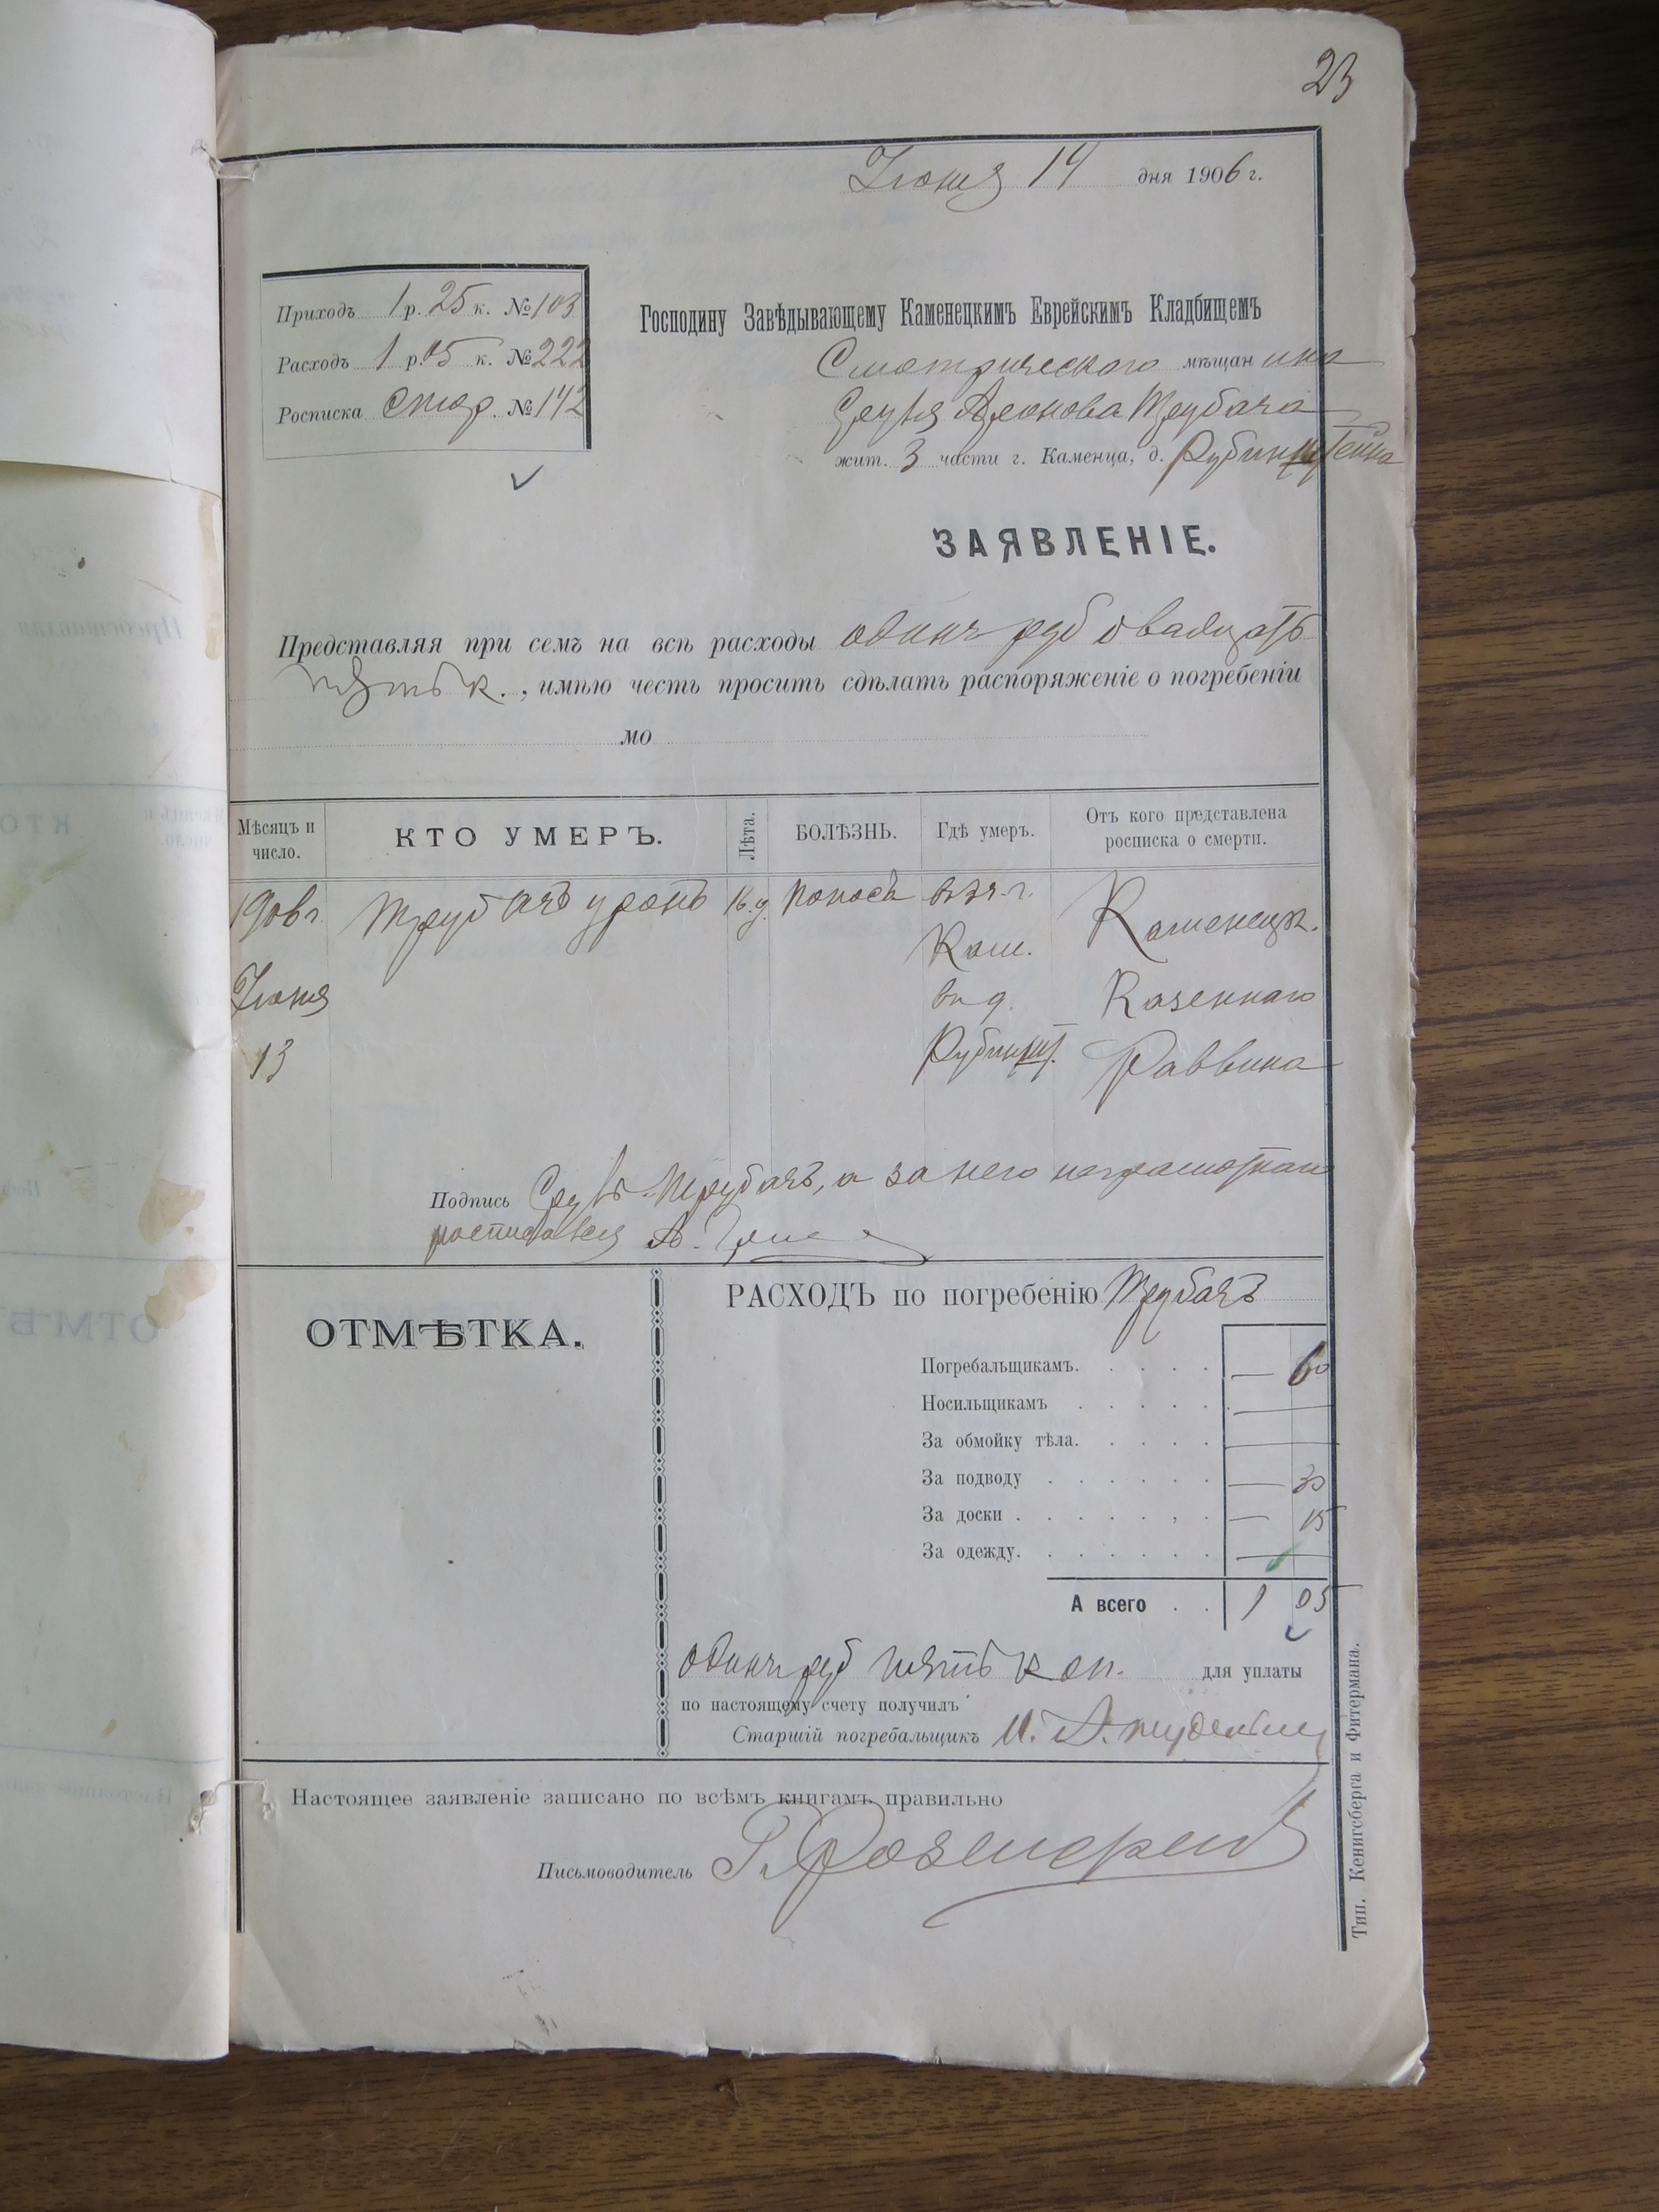 23
Іюня 14 дня 1906 г.
Приходъ 1 р. 25 к. № 103
Расходъ 1 р. 05 к. № 222
Росписка стар. № 142
Господину Завѣдывающему Каменецкимъ Еврейскимъ Кладбищемъ
Смотрическаго мѣщанина
Сруля Аронова Трубача
жит. 3 части г. Каменца, д. Рубинштейна
ЗАЯВЛЕНІЕ.
Представляя при семъ на всѣ расходы одинъ руб двадцать
пять к., имѣю честь просить сдѣлать распоряженіе о погребеніи
мо
Мѣсяцъ и число.
КТО УМЕРЪ.
Лѣта.
БОЛѢЗНЬ.
Гдѣ умеръ.
Отъ кого представлена росписка о смерти.
1906 г. Трубачъ поносъ въ г. Каменецк.
Кам.
Іюня въ д. Казеннаго
13 Рубиншт. Раввина
Подпись Сруль Трубачъ, а за него неграмотнаго
росписался А.
ОТМѢТКА.
РАСХОДЪ по погребенію Трубачъ
Погребальщикамъ. — 60
Носильщикамъ —
За обмойку тѣла. —
За подводу — 30
За доски — 15
За одежду. —
А всего 1 05
одинъ руб пять коп. для уплаты
по настоящему счету получилъ
Старшій погребальщикъ
Настоящее заявленіе записано по всѣмъ книгамъ правильно
Письмоводитель
Тип. Кенигсберга и Фитермана.